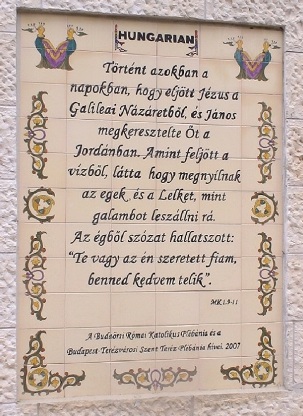 HUNGARIAN
Történt azokban a
napokban, hogy eljött Jézus a
Galileai Názáretből, és János
megkeresztelte Őt a
Jordánban. Amint feljött a
vízből, látta hogy megnyílnak
az egek, és a Lelket, mint
galambot leszállni rá.
Az égből szózat hallatszott:
"Te vagy az én szeretett fiam,
benned kedvem telik".
MK 1.9-11
A Budaörsi Római Katolikus Plébánia és a
Budapest-Terézvárosi Szent Teréz Plébánia hívei, 2007